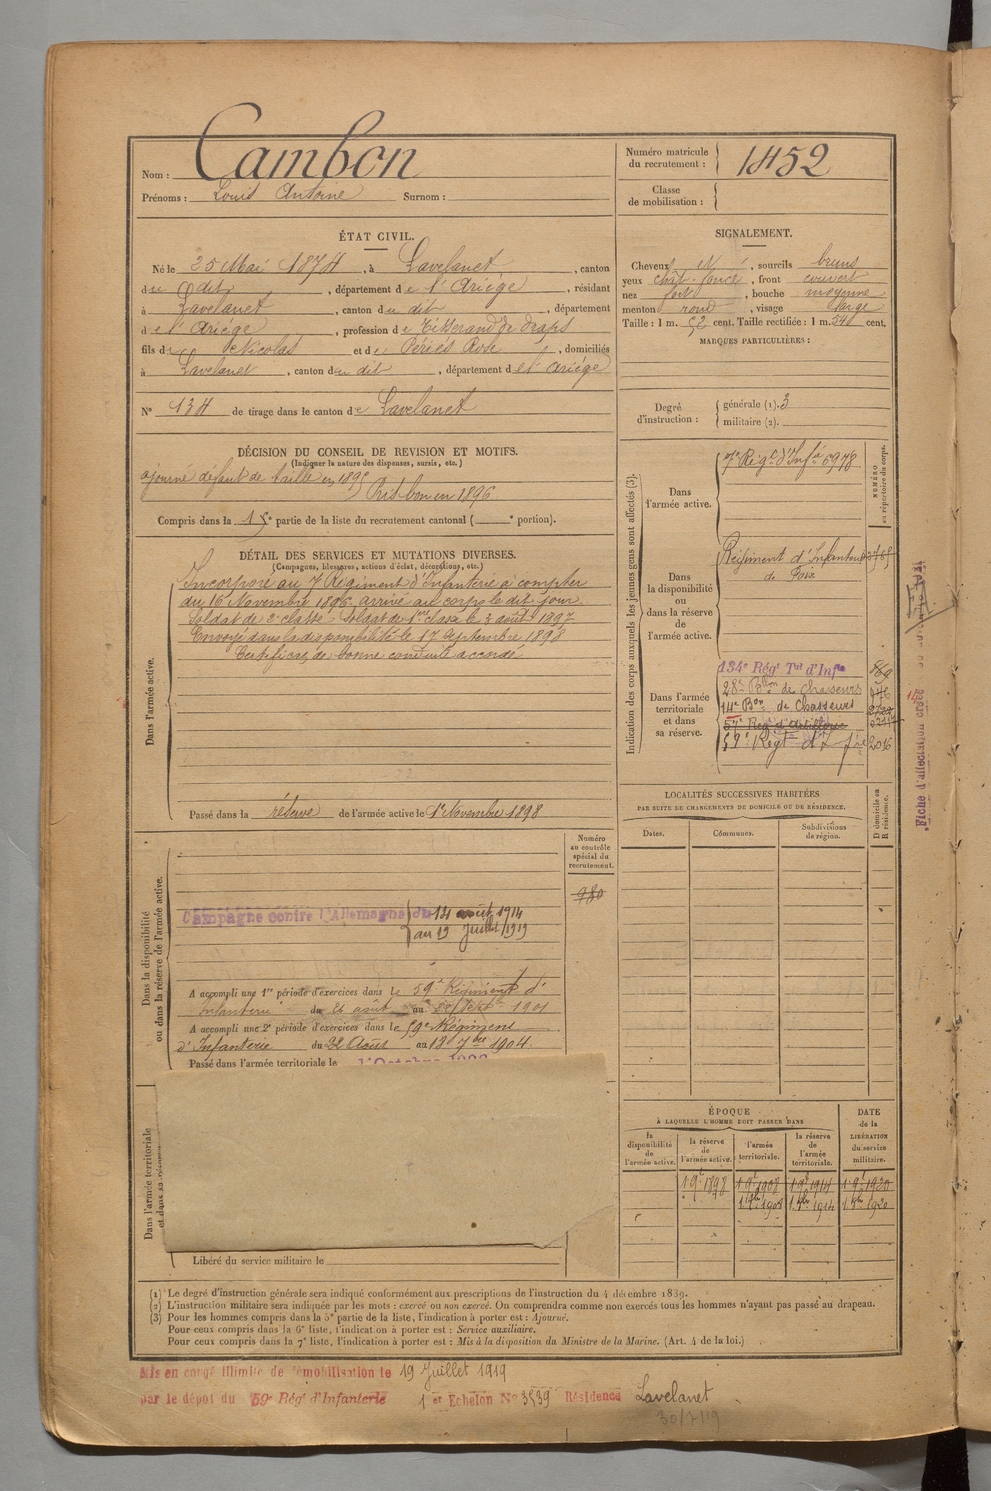 Nom : Cambon
Prénoms : Louis Antoine Surnom :
Numéro matricule
du recrutement : 1452
Classe
de mobilisation :
ÉTAT CIVIL.
Né le 25 Mai 1874, à Lavelanet, canton
du dit, département de l'Ariége, résidant
à Lavelanet, canton du dit, département
de l'Ariége, profession de Tisserand de draps
fils de Nicolas et de Périés Rose, domiciliés
à Lavelanet, canton du dit, département de l'Ariége
N° 134 de tirage dans le canton de Lavelanet
SIGNALEMENT.
Cheveux, sourcils bruns
yeux chât. foncé, front couvert
nez fort, bouche moyenne
menton rond, visage large
Taille : 1 m. 52 cent. Taille rectifiée : 1 m. 54 cent.
MARQUES PARTICULIÈRES :
Degré
d'instruction :
générale (1). 3
militaire (2).
DÉCISION DU CONSEIL DE REVISION ET MOTIFS.
(Indiquer la nature des dispenses, sursis, etc.)
ajourné défaut de taille en 1895
Pris bon en 1896
Compris dans la partie de la liste du recrutement cantonal ( portion).
DÉTAIL DES SERVICES ET MUTATIONS DIVERSES.
(Campagnes, blessures, actions d'éclat, décorations, etc.)
Dans l'armée active.
Incorporé au 7 Régiment d'Infanterie a compter
du 16 Novembre 1896. arrivé au corps le dit jour.
Soldat de 2e classe. Soldat de 1ere classe le 3 août 1897
Envoyé dans la disponibilité le 17 Septembre 1898
Certificat de bonne conduite accordé
Passé dans la réserve de l'armée active le 1er Novembre 1898
Indication des corps auxquels les jeunes gens sont affectés (3).
NUMÉRO
au répertoire du corps.
Dans
l'armée active.
7e Régt d'Infie 6978
Dans
la disponibilité
ou
dans la réserve
de
l'armée active.
Régiment d'Infanterie
de Foix
Dans l'armée
territoriale
et dans
sa réserve.
134e Régt Tal d'Infie
28e Bllon de Chasseurs
14e Bon de Chasseurs
57e Reg d'Artillerie
59e Regt d'Ifie 2016
LOCALITÉS SUCCESSIVES HABITÉES
PAR SUITE DE CHANGEMENTS DE DOMICILE OU DE RÉSIDENCE.
Dates.
Communes.
Subdivisions
de région.
D domicile ou
R résidence.
Dans la disponibilité
ou dans la réserve de l'armée active.
Numéro
au contrôle
spécial du
recrutement.
980
Campagne contre l'Allemagne du 14 août 1914
au 19 Juillet 1919
A accompli une 1re période d'exercices dans le 59e Régiment d'
Infanterie du août au 1901
A accompli une 2e période d'exercices dans le 59e Régiment
d'Infanterie du 22 Août au 18 7bre 1904.
Passé dans l'armée territoriale le
Dans l'armée territoriale
et dans sa réserve.
Libéré du service militaire le
ÉPOQUE
À LAQUELLE L'HOMME DOIT PASSER DANS
la
disponibilité
de
l'armée active.
la réserve
de
l'armée active.
l'armée
territoriale.
la réserve
de
l'armée
territoriale.
DATE
de la
LIBÉRATION
du service
militaire.
1 9e 1898 1 9e 1908 1 9e 1914 1 9e 1920
1908 1914 1920
Fiche d'affectation
(1) Le degré d'instruction générale sera indiqué conformément aux prescriptions de l'instruction du 4 décembre 1889.
(2) L'instruction militaire sera indiquée par les mots : exercé ou non exercé. On comprendra comme non exercés tous les hommes n'ayant pas passé au drapeau.
(3) Pour les hommes compris dans la 5e partie de la liste, l'indication à porter est : Ajourné.
Pour ceux compris dans la 6e liste, l'indication à porter est : Service auxiliaire.
Pour ceux compris dans la 7e liste, l'indication à porter est : Mis à la disposition du Ministre de la Marine. (Art. 4 de la loi.)
Mis en congé illimité de démobilisation le 19 Juillet 1919
par le dépôt du 59e Régt d'Infanterie 1 er Echelon N° 3539 Résidence Lavelanet
30/7/19